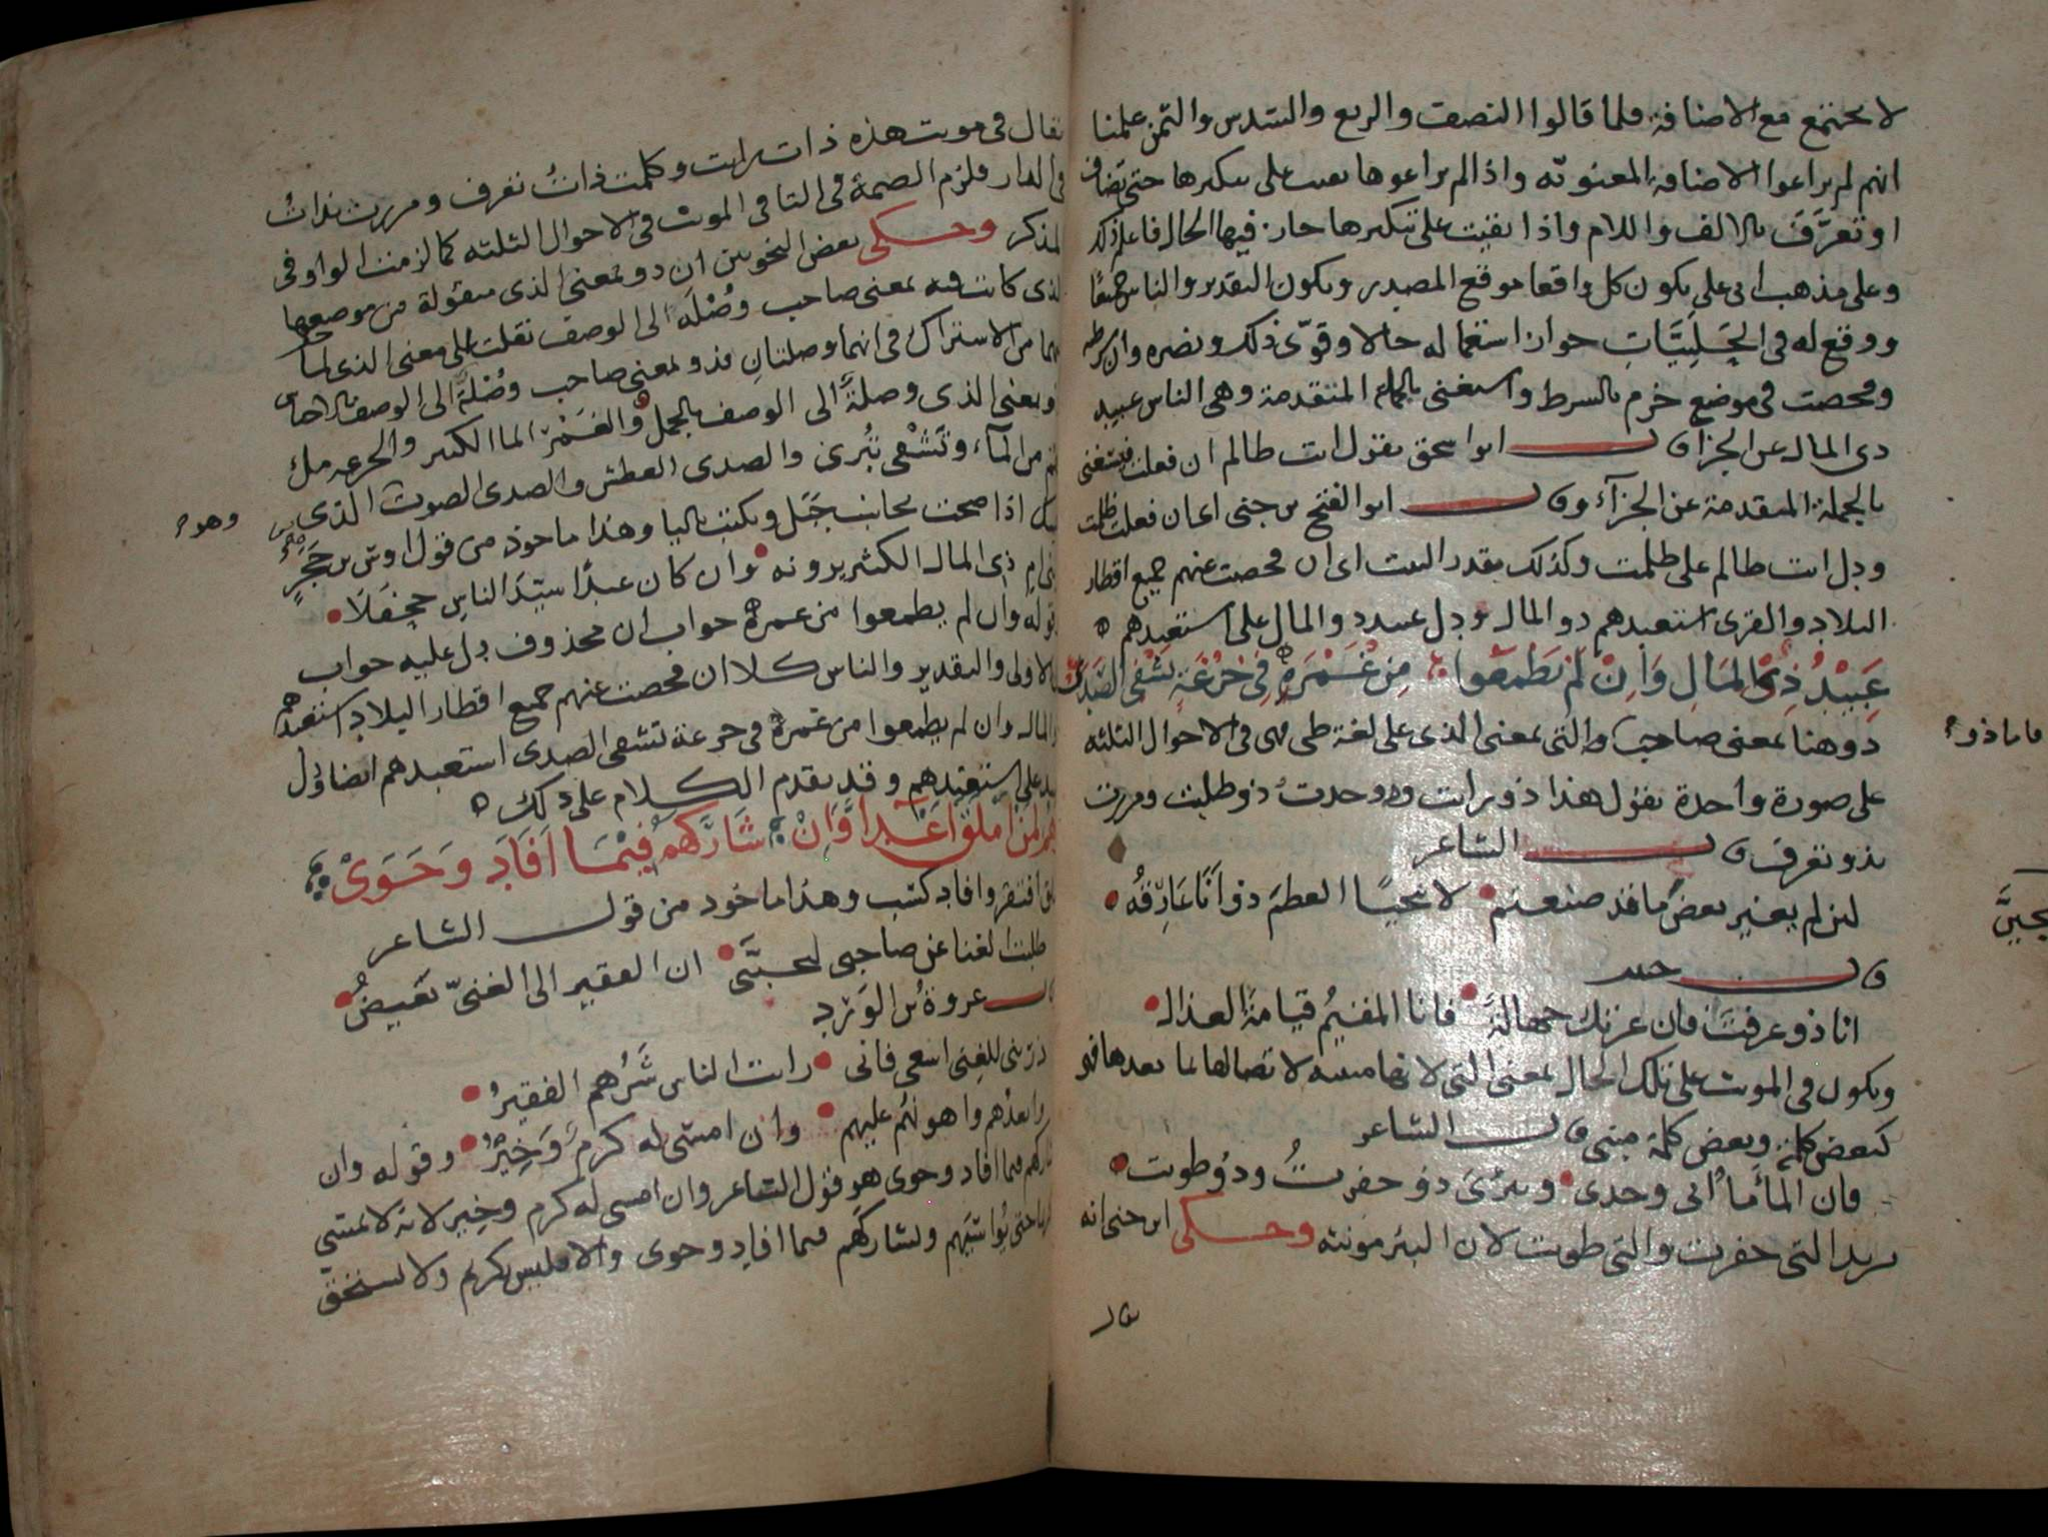 لا يجتمع مع الاضافة فلما قالوا النصف والربع والسدس والثمن علمنا
انهم لم يراعوا الاضافة المعنوية واذا لم يراعوها بقيت على تنكيرها حتى تضاف
او تعرَّفَ بالالف واللام واذا بقيت على تنكيرها جاز فيها الحال فاعلم ذلك
وعلى مذهب ابى على يكون كل واقعا موقع المصدر ويكون التقدير والناس جميعًا
ووقع له فى الحَلَبِيَّاتِ جواز استعماله حالا وقوّى ذلك ونصره وان شرط
ومحصت فى موضع جزم بالشرط واستغنى بالجملة المتقدمة وهى الناس عبيد
ذى المال عن الجزا قال ابو اسحق يقول انت ظالم ان فعلت فيستغنى
بالجملة المتقدمة عن الجزآء وقال ابو الفتح بن جنى اى ان فعلت ظلمت
ودل انت ظالم على ظلمت وكذلك يقدر البيت اى ان محصت عنهم جميع اقطار
البلاد والقرى استعبدهم ذو المال ودل عبيد ذو المال على استعبدهم
عَبِيْدُ ذِى المَالِ وَاِنْ لَمْ يَطْمَعُوا مِنْ غَمْرَةٍ فِى جُرْعَةٍ تَشْفِى الصَّدَى
ذو هنا بمعنى صاحب والتى بمعنى الذى على لغة طى فهى فى الاحوال الثلثة
فاما ذو
على صورة واحدة يقول هذا ذو رايت ووجدت ذو طلبت ومررت
بذو تعرف قال الشاعر
لئن لم يغير بعض ما قد صنعتم لانتحيًا العظم ذو اَنَا عَارِقُهْ
وقال حبيب
انا ذو عرفت فان عرتك جهالة فانا المقيم قيامة العذال
ويكون فى المونث على تلك الحال بمعنى التى لانها مبنية لاتصالها بما بعدها فهى
كبعض كلمة وبعض كلمة مبنى قال الشاعر
فان المأَ مأُ ابى وجدى وبئرى ذو حفرتُ وذو طويت
يريد التى حفرت والتى طويت لان البئر مونثه وحكى ابن جنى انه
يقال
يقال فى مونث هذه ذات رايت وكلمت ذاتُ تعرف ومررت بذاتُ
فى الدار فلزم الضمة فى التا فى المونث فى الاحوال الثلثة كما لزمت الواو فى
المذكر وحكى بعض النحويين ان ذو بمعنى الذى منقولة من موضعها
الذى كانت فيه بمعنى صاحب وُصْلَة الى الوصف نقلت الى معنى الذى لما
بينهما من الاشتراك فى انهما وصلتان فذو بمعنى صاحب وُصْلَةً الى الوصف بالاجناس
وبمعنى الذى وصلةً الى الوصف بالجمل والغَمْرُ الما الكثير والجرعه ملء
الفم من المآء وتَشْفى تُبْرى والصدى العطش والصدى الصوت الذى
اذا صحت بجانب جَبَل ويكتب باليا وهذا ماخوذ من قول اوس بن حَجَرٍ
وهو
ذى المال الكثير يرونه وان كان عبدًا سيّدَ الناسِ جحفلَا
قوله وان لم يطمعوا من غمرة جواب ان محذوف دل عليه جواب
الاولى والتقدير والناس كلا ان محصت عنهم جميع اقطار البلاد استعبدهم
المال وان لم يطمعوا من غمرة فى جرعة تشفى الصدى استعبدهم ايضا ودل
عبيد على استعبدهم وقد تقدم الكلام على ذلك
وَهُمْ لِمَنْ اَمْلَقَ اَعْدَا وَاِنْ شَارَكَهُمْ فِيْمَا اَفَادَ وَحَوَىْ
املق افتقر وافاد كسب وهذا ماخوذ من قول الشاعر
طلبت الغنا عن صاحبى ليحبَّنى ان الفقير الى الغنىّ بَغيضُ
قال عروةُ بن الوَرْدِ
ذرينى للغِنى اسعى فانى رايت الناس شَرُّهم الفقيرُ
وابعدُهم واهونُهم عليهم وان امسى له كرمٌ وَخِيْرُ وقوله وان
شاركهم فيما افاد وحوى هو قول الشاعر وان امسى له كرم وخِير لانه لا يمسى
كريما حتى يُواسيَهم ويشاركَهم فيما افاد وحوى والا فليس بكريم ولا يستحق